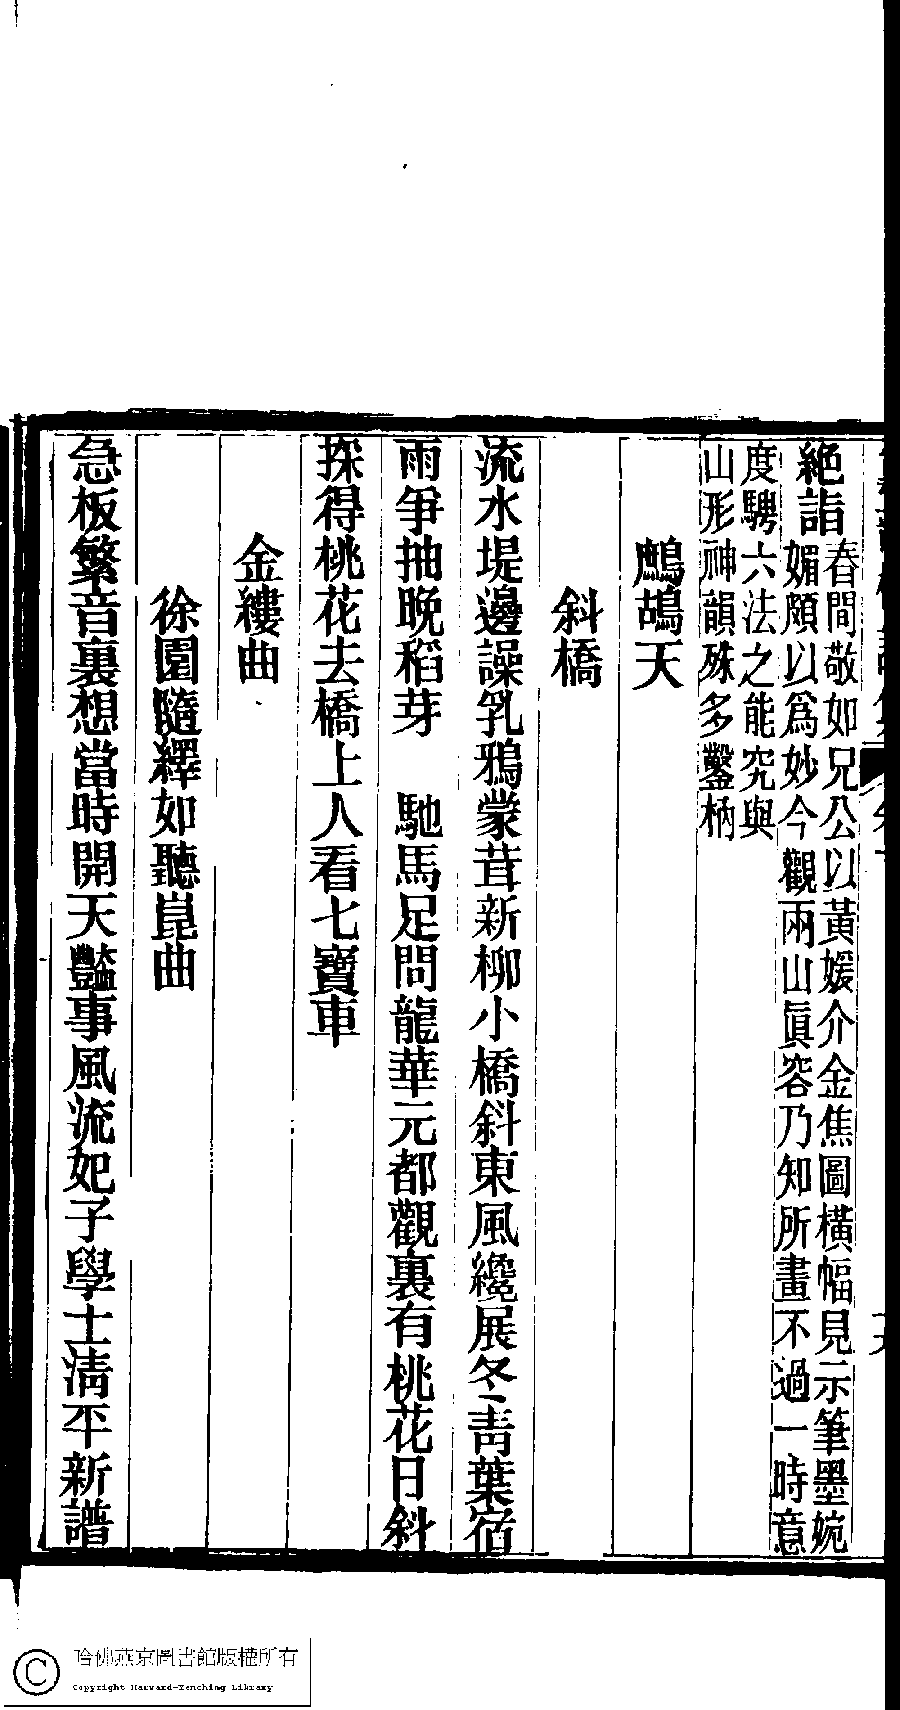 絶詣春間敬如兄公以黃媛介金焦圖橫幅見示筆墨婉
媚頗以爲妙今觀兩山眞容乃知所畫不過一時意
度騁六法之能究與
山形神韻殊多鑿枘
鷓鴣天
斜橋
流水堤邊譟乳鴉蒙茸新柳小橋斜東風纔展冬靑葉宿
雨爭抽晚稻芽　馳馬足問龍華元都觀裏有桃花日斜
探得桃花去橋上人看七寶車
金縷曲
徐園隨繹如聽崑曲
急板繁音裏想當時開天豔事風流妃子學士淸平新譜
哈佛燕京圖書館版權所有
Copyright Harvard-Yenching Library